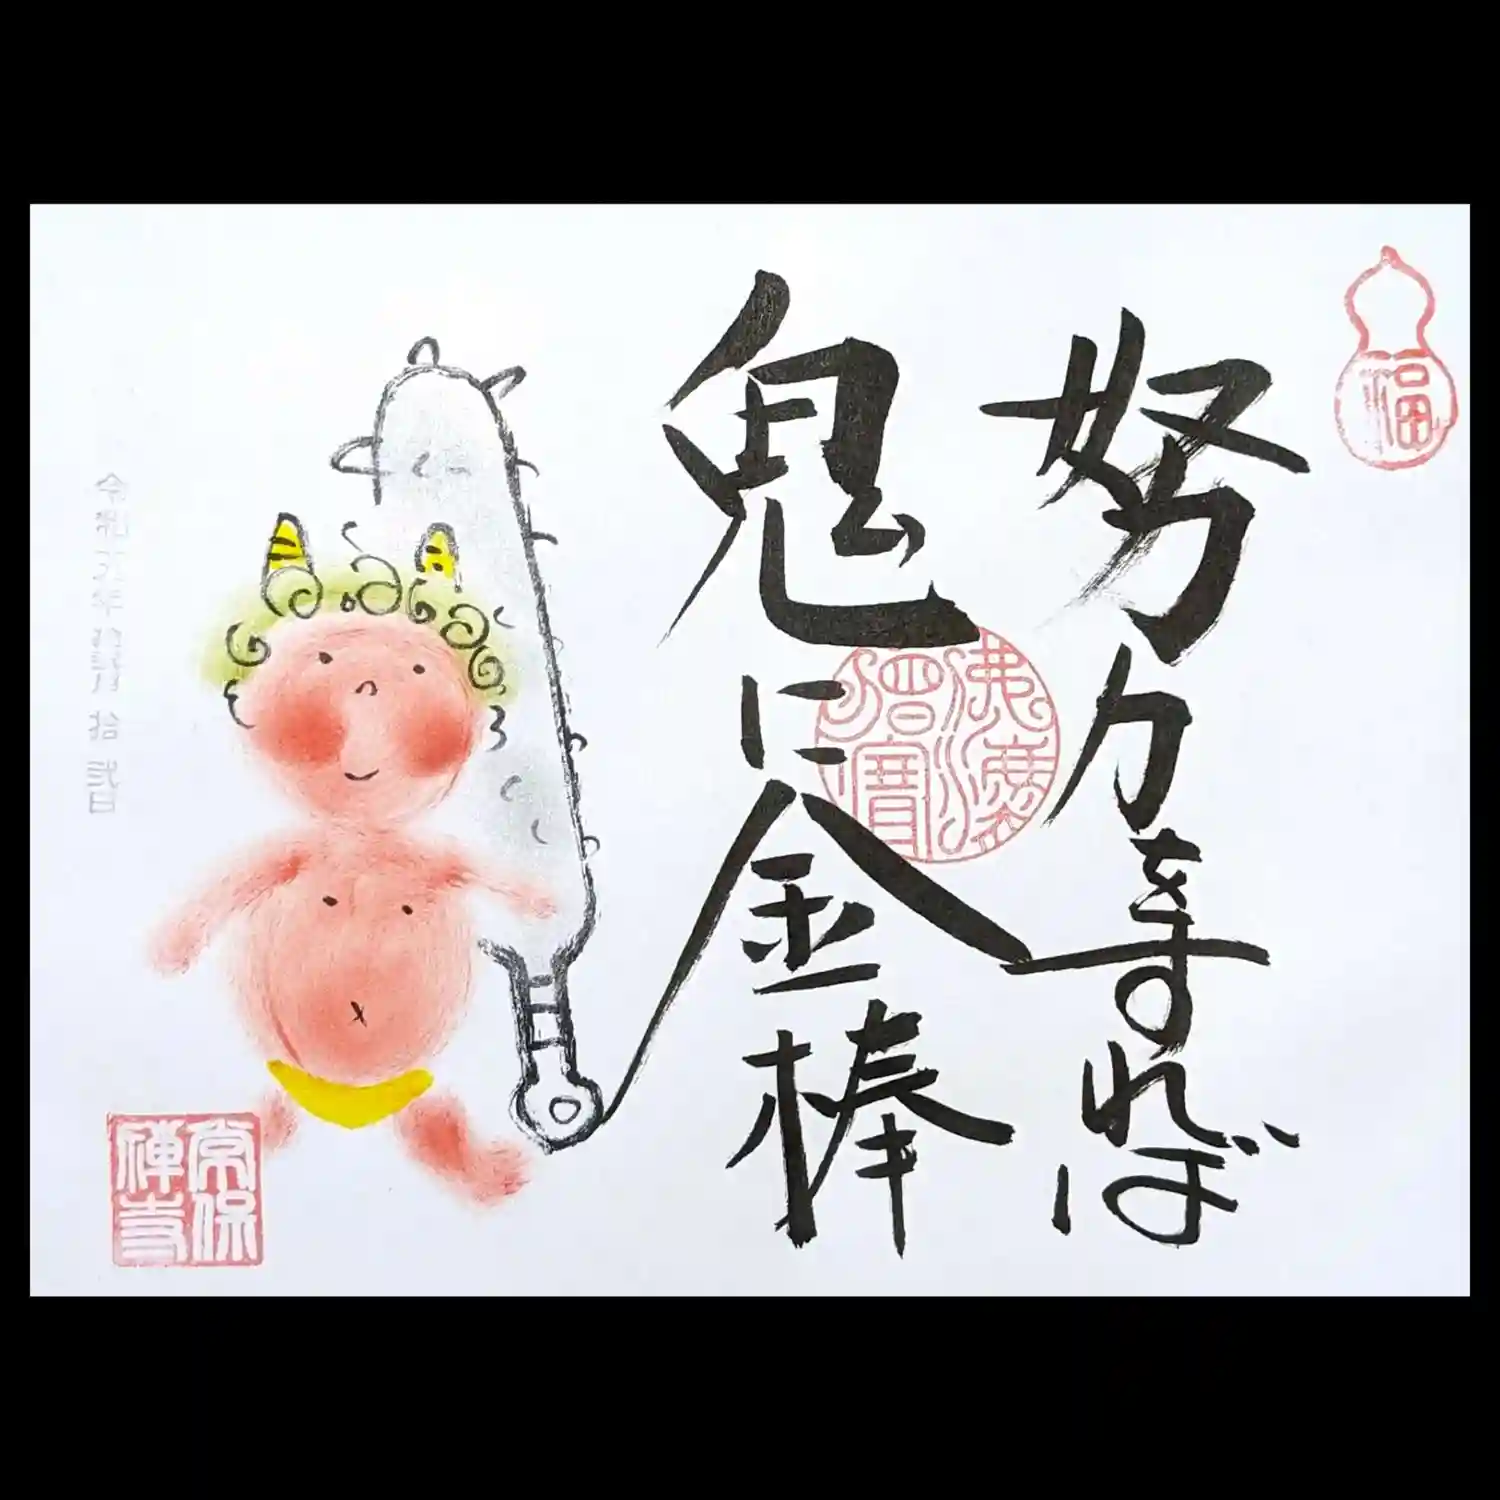 福
努力をすれば
鬼に金棒
佛灋僧寶
令和六年
拾弐日
常保
禅寺